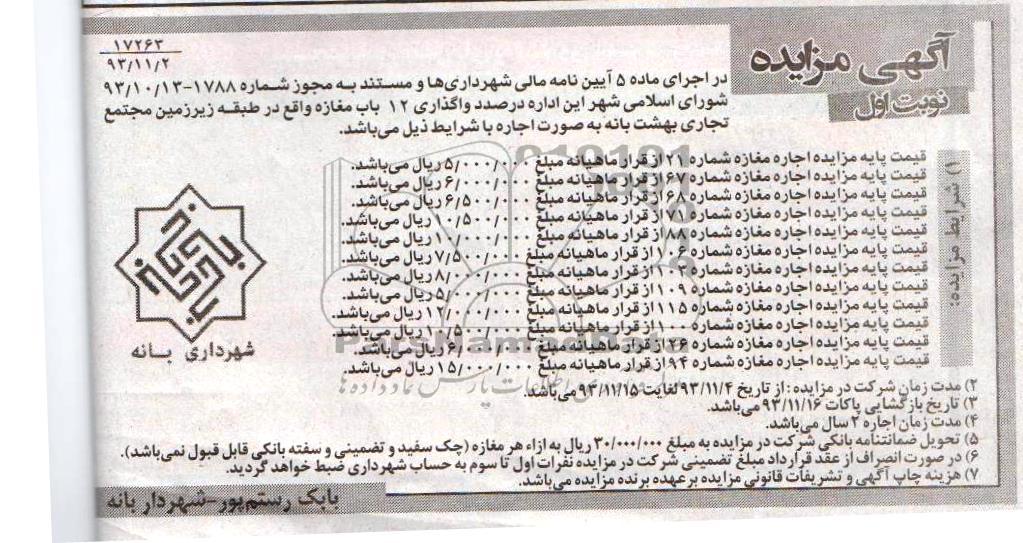 آگهی مزایده
نوبت اول
۱۷۲۶۳
۹۳/۱۱/۲
در اجرای ماده ۵ آیین نامه مالی شهرداری‌ها و مستند به مجوز شماره ۱۷۸۸-۹۳/۱۰/۱۳
شورای اسلامی شهر این اداره درصدد واگذاری ۱۲ باب مغازه واقع در طبقه زیرزمین مجتمع
تجاری بهشت بانه به صورت اجاره با شرایط ذیل می‌باشد.
۱) شرایط مزایده:
قیمت پایه مزایده اجاره مغازه شماره ۲۱ از قرار ماهیانه مبلغ ۵/۰۰۰/۰۰۰ ریال می‌باشد.
قیمت پایه مزایده اجاره مغازه شماره ۶۷ از قرار ماهیانه مبلغ ۶/۰۰۰/۰۰۰ ریال می‌باشد.
قیمت پایه مزایده اجاره مغازه شماره ۶۸ از قرار ماهیانه مبلغ ۶/۵۰۰/۰۰۰ ریال می‌باشد.
قیمت پایه مزایده اجاره مغازه شماره ۷۱ از قرار ماهیانه مبلغ ۱۰/۵۰۰/۰۰۰ ریال می‌باشد.
قیمت پایه مزایده اجاره مغازه شماره ۸۸ از قرار ماهیانه مبلغ ۱۰/۰۰۰/۰۰۰ ریال می‌باشد.
قیمت پایه مزایده اجاره مغازه شماره از قرار ماهیانه مبلغ ۷/۵۰۰/۰۰۰ ریال می‌باشد.
قیمت پایه مزایده اجاره مغازه شماره ۱۰۳ از قرار ماهیانه مبلغ ۸/۰۰۰/۰۰۰ ریال می‌باشد.
قیمت پایه مزایده اجاره مغازه شماره ۱۰۹ از قرار ماهیانه مبلغ ۵/۰۰۰/۰۰۰ ریال می‌باشد.
قیمت پایه مزایده اجاره مغازه شماره ۱۱۵ از قرار ماهیانه مبلغ ریال می‌باشد.
قیمت پایه مزایده اجاره مغازه شماره ۱۰۰ از قرار ماهیانه مبلغ ۱۰/۵۰۰/۰۰۰ ریال می‌باشد.
قیمت پایه مزایده اجاره مغازه شماره ۲۶ از قرار ماهیانه مبلغ ۶/۰۰۰/۰۰۰ ریال می‌باشد.
قیمت پایه مزایده اجاره مغازه شماره ۹۴ از قرار ماهیانه مبلغ ۱۵/۰۰۰/۰۰۰ ریال می‌باشد.
شهرداری بانه
۲) مدت زمان شرکت در مزایده: از تاریخ ۹۳/۱۱/۴ لغایت ۹۳/۱۱/۱۵ می‌باشد.
۳) تاریخ بازگشایی پاکات ۹۳/۱۱/۱۶ می‌باشد.
۴) مدت زمان اجاره ۲ سال می‌باشد.
۵) تحویل ضمانتنامه بانکی شرکت در مزایده به مبلغ ۳۰/۰۰۰/۰۰۰ ریال به ازاء هر مغازه (چک سفید و تضمینی و سفته بانکی قابل قبول نمی‌باشد).
۶) در صورت انصراف از عقد قرارداد مبلغ تضمینی شرکت در مزایده نفرات اول تا سوم به حساب شهرداری ضبط خواهد گردید.
۷) هزینه چاپ آگهی و تشریفات قانونی مزایده بر عهده برنده مزایده می‌باشد.
بابک رستم‌پور-شهردار بانه